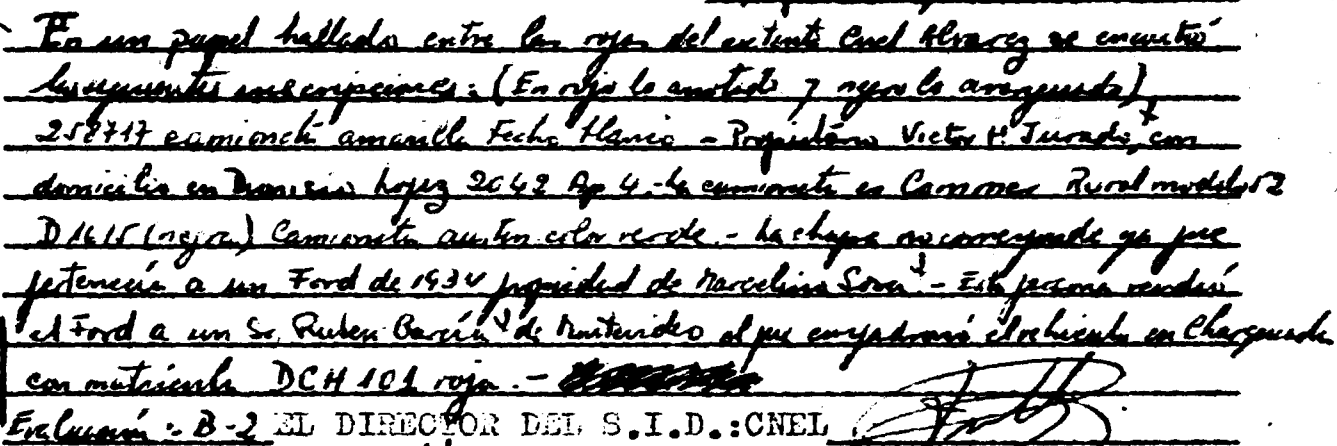 En un papel hallado entre las ropas del extinto Cnel Alvarez se encontró
las siguientes inscripciones: (En rojo lo anotado y negro lo averiguado)
258717 camioncito amarilla Techo blanco - Propietario Victor H. Jurado, con
domicilio en Dionisio Lopez 2042 Ap 4.- La camioneta es Commer Rural modelo 52
D1615 (negra) Camioneta austin color verde.- La chapa no corresponde ya que
pertenecía a un Ford de 1934 propiedad de Marcelino Sosa - Esta persona vendió
el Ford a un Sr. Ruben García de Montevideo el que empadronó el vehículo en Charqueada
con matrícula DCH 101 roja.-
Evaluación:- B-2 EL DIRECTOR DEL S.I.D.:CNEL